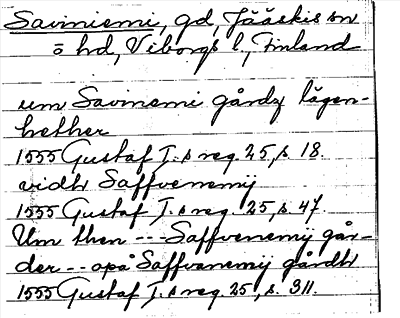 Saviniemi, gd, Jääskis sn
ö hd, Viborgs l., Finland
um Savinemi gårdz lägen-
hether
1555 Gustaf I:s reg. 25, s. 18.
vidh Saffvenemÿ
1555 Gustaf I:s reg. 25, s. 47.
Um then --- Saffvenemÿ går-
der -- opå Saffvanemÿ gårdh
1555 Gustaf I:s reg. 25, s. 311.